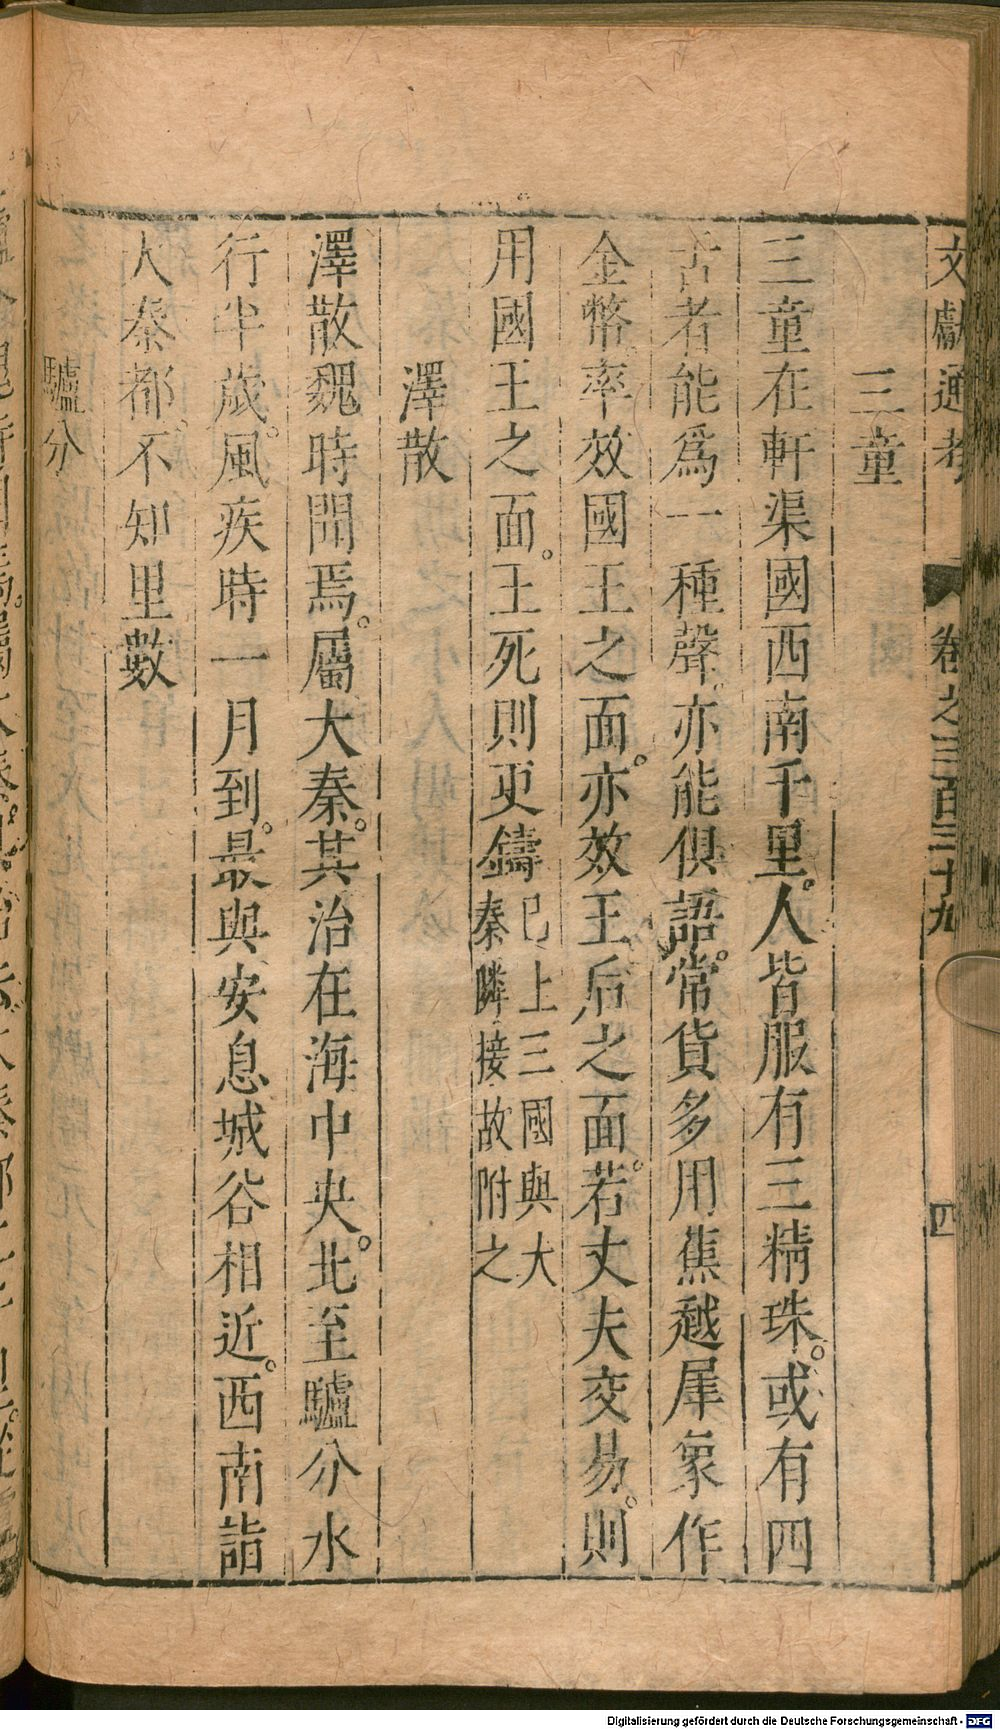 文獻通考 卷之三百三十九 四
三童
三童在軒渠國西南千里。人皆服有三精珠。或有四
舌者能爲一種聲。亦能俱語。常貨多用蕉越犀象作
金幣率效國王之面。亦效王后之面。若丈夫交易。則
用國王之面。王死則更鑄已上三國與大
秦隣接故附之
澤散
澤散魏時聞焉。屬大秦。其治在海中央。北至驢分水
行半歲。風疾時一月到。最與安息城谷相近。西南詣
大秦都。不知里數
驢分
Digitalisierung gefördert durch die Deutsche Forschungsgemeinschaft - DFG